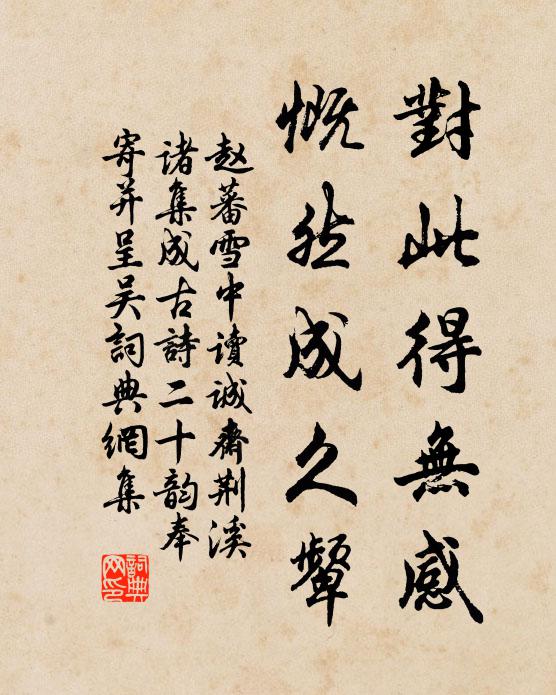 對此得無感
慨然成久顰
赵蕃雪中讀誠齋荆溪
诸集成古詩二十韵奉
寄并呈吴詞典網集
詞典网印